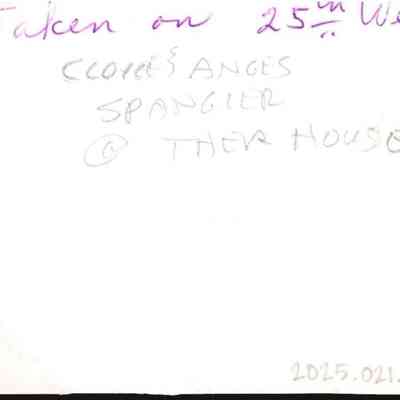 Taken on 25th We
CLOYCE & ANGES
SPANGLER
@ THER HOUSE
2025.021.